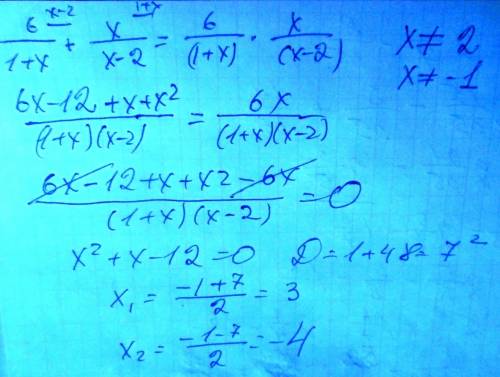 6^(x-2)/(1+x) + x^(1+x)/(x-2) = 6/(1+x) · x/(x-2)
x ≠ 2
x ≠ -1
(6x-12+x+x²)/((1+x)(x-2)) = 6x/((1+x)(x-2))
(6x-12+x+x²-6x)/((1+x)(x-2)) = 0
x²+x-12=0 D=1+48=7²
x₁ = (-1+7)/2 = 3
x₂ = (-1-7)/2 = -4